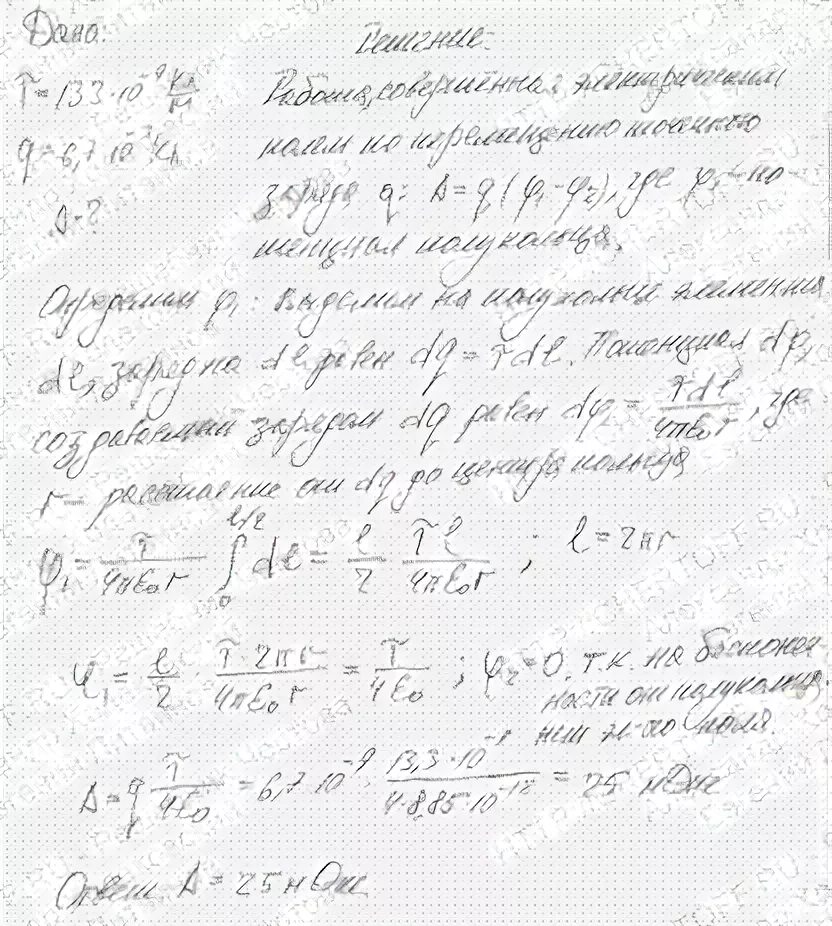 Дано:
Решение.
τ = 133·10⁻⁹ Кл/м
q = 6,7·10⁻⁹ Кл
A - ?
Работа, совершённая электрическим
полем по перемещению точечного
заряда q: A = q(φ₁ - φ₂), где φ₁ - по-
тенциал полукольца.
Определим φ₁: Выделим на полукольце элемент
dl, заряд на dl равен dq = τdl. Потенциал dφ₁
создаваемый зарядом dq равен dφ₁ = τdl/4πε₀r, где
r - расстояние от dq до центра кольца
φ₁ = τ/4πε₀r ∫₀^(l/2) dl = l/2 τl/4πε₀r ; l = 2πr
φ₁ = l/2 · τ·2πr/4πε₀r = τ/4ε₀ ; φ₂ = 0, т.к. на бесконеч-
ности от полукольца
нет поля.
A = q τ/4ε₀ = 6,7·10⁻⁹ · 13,3·10⁻⁹/4·8,85·10⁻¹² = 25 нДж
Ответ. A = 25 нДж